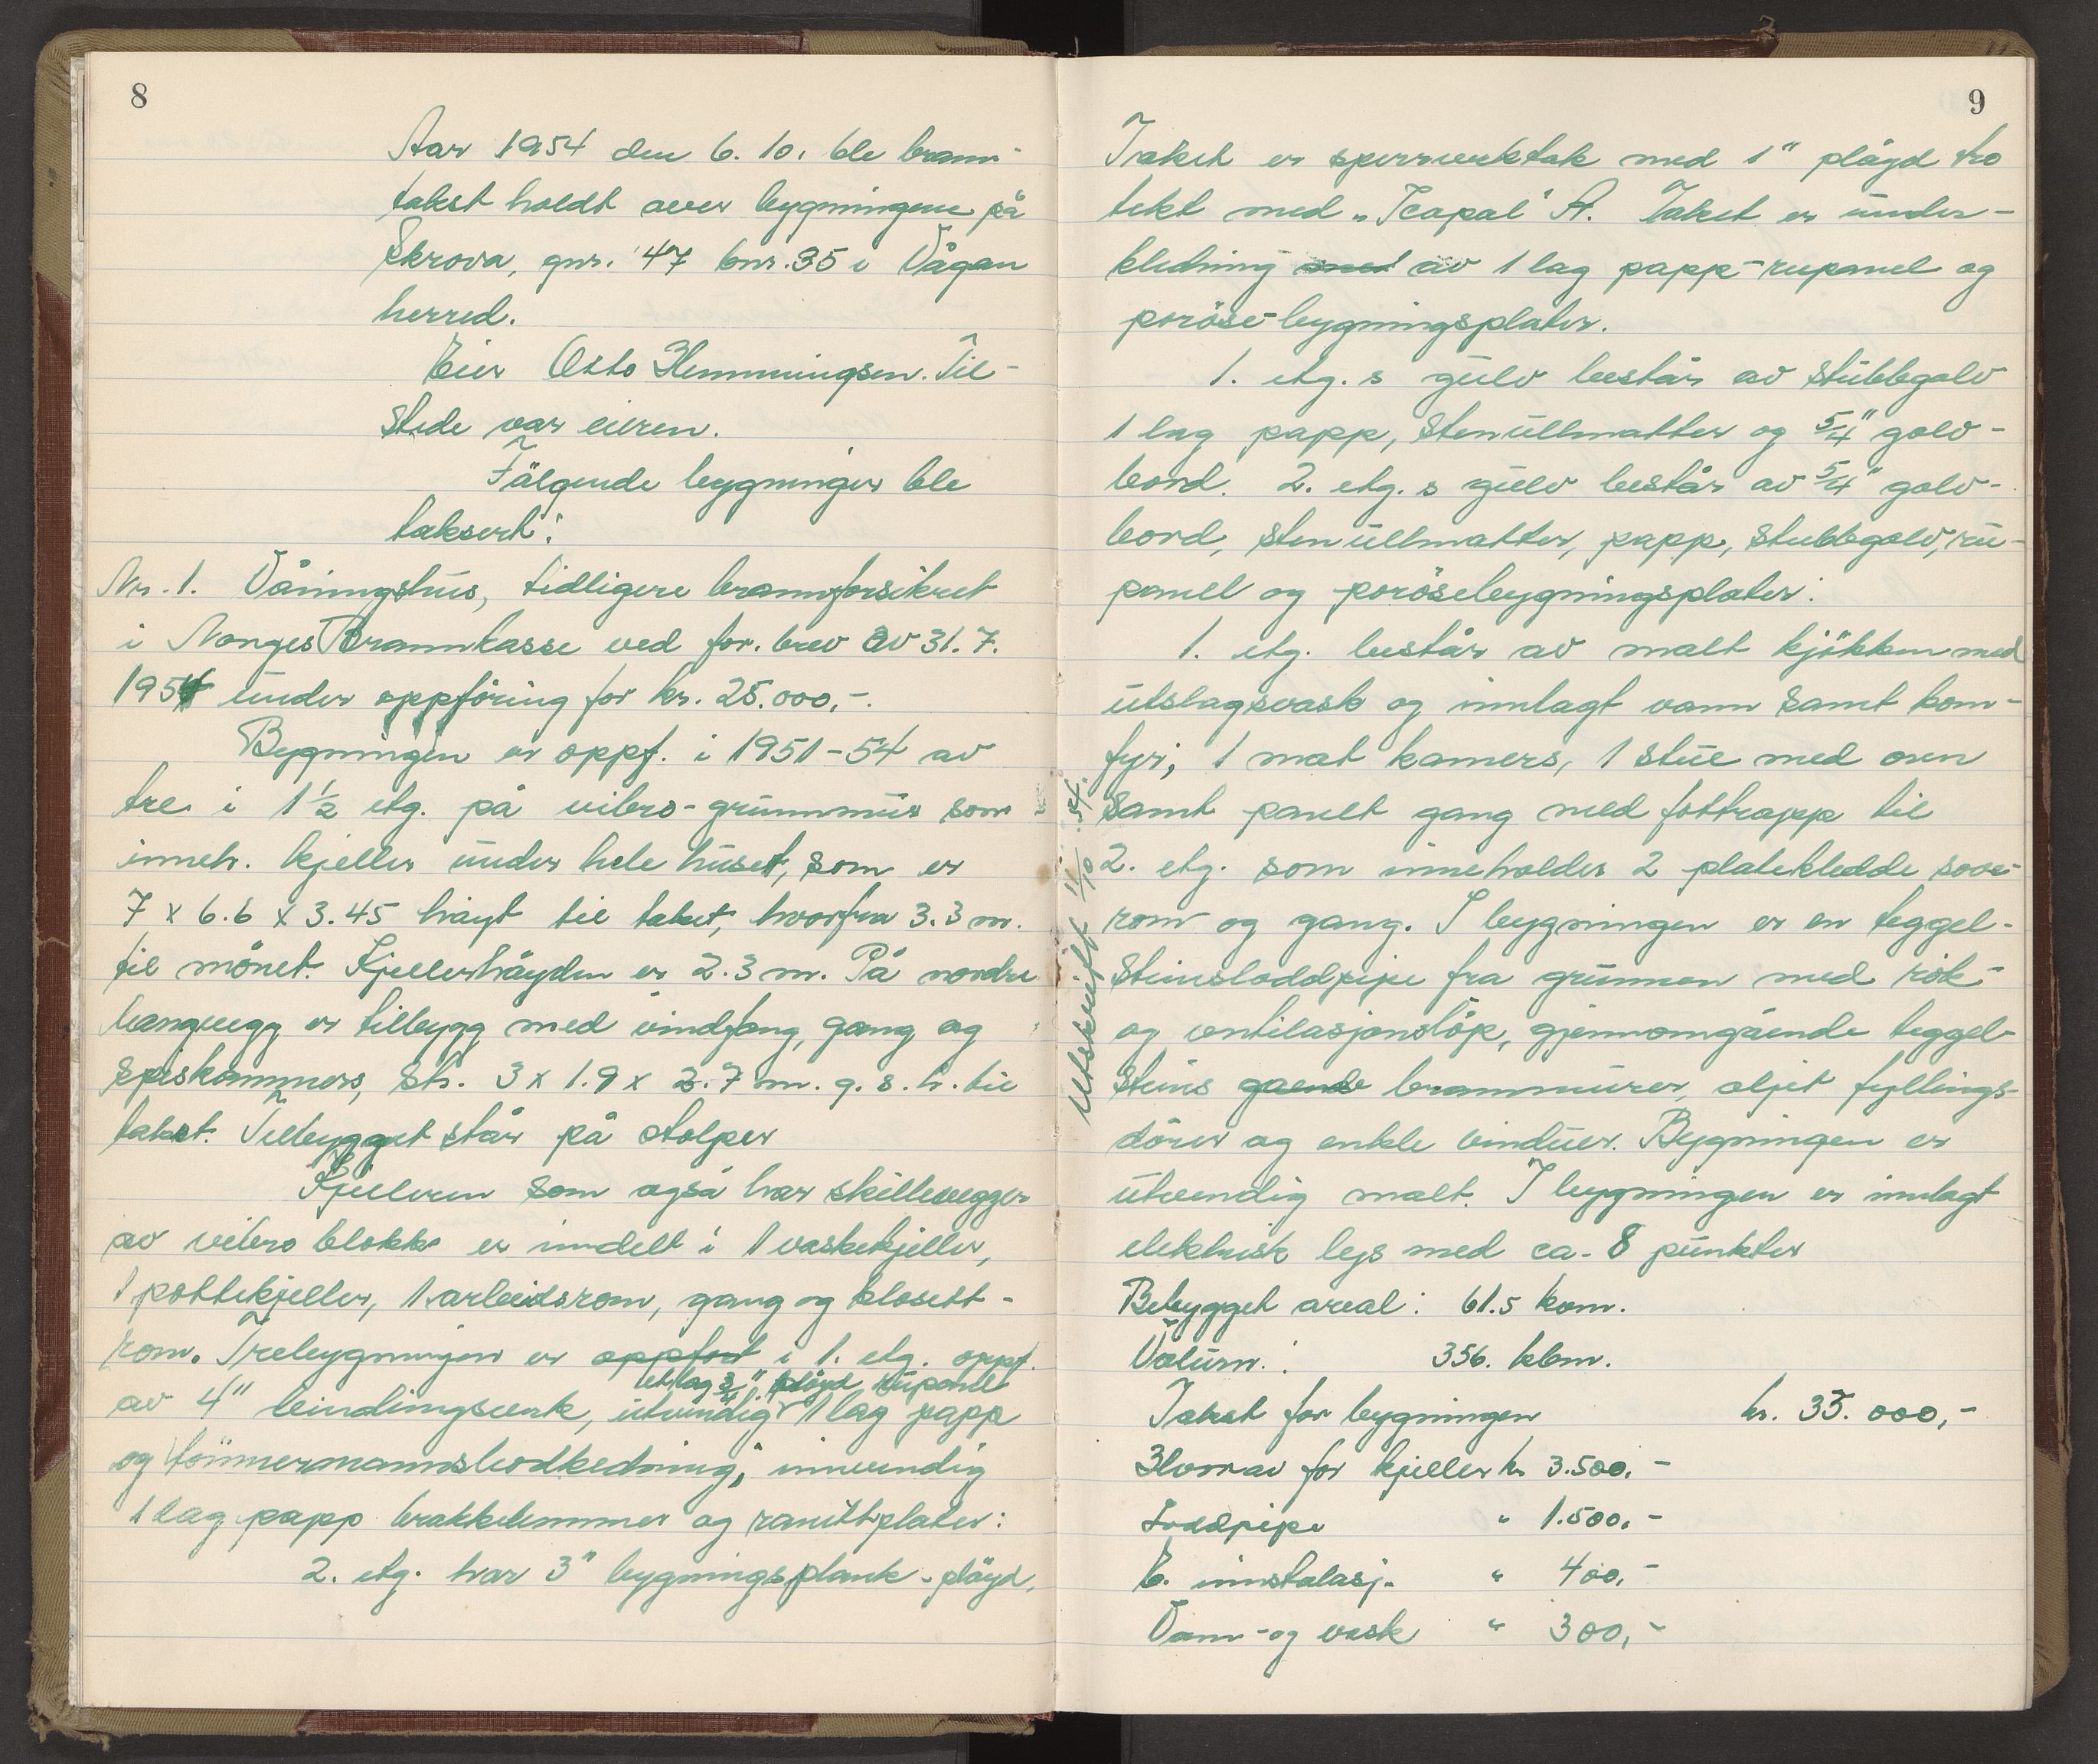 8
Aar 1954 den 6. 10. ble brann-
takst holdt over bygningene på
Skrova, gnr. 47 bnr. 35 i Vågan
herred.
Eier Otto Hemmingsen. Til-
stede var eieren.
Fölgende bygninger ble
taksert:
Nr. 1. Våningshus, tidligere brannforsikret
i Norges Brannkasse ved for. brev av 31. 7.
1954 under oppföring for kr. 25.000,-.
Bygningen er oppf. i 1951-54 av
tre i 1 1/2 etg. på vibro-grunnmur som
inneh. kjeller under hele huset, som er
7 x 6.6 x 3.45 höyt til taket, hvorfra 3.3 m.
til mönet. Kjellerhöyden er 2.3 m. På nordre
langvegg er tilbygg med vindfang, gang og
spiskammers, str. 3 x 1.9 x 2.7 m. g. s. h. til
taket. Tilbygget står på stolper
Kjelleren som også har skillevegger
av vibro blokk er inndelt i 1 vaskekjeller,
1 pottekjeller, 1 arbeidsrom, gang og klosett-
rom. Trebygningen er oppfört i 1. etg. oppf.
et lag 3/4" plöyd rupanel
av 4" bindingsverk, utvendig 1 lag papp
og tömmermannsbordkledning, innvendig
1 lag papp brakkelemmer og ranittplater:
2. etg. har 3" bygningsplank - plöyd.
Utskrift 11/10. 54.
9
Taket er sperrverktak med 1" plöyd tro
tekt med "Icopal" A. Taket er under-
kledning med av 1 lag papp-rupanel og
poröse-bygningsplater.
1. etg. s gulv består av stubbgolv
1 lag papp, stenullmatter og 5/4" golv-
bord. 2. etg. s gulv består av 5/4" golv-
bord, stenullmatter, papp, stubbgolv, ru-
panell og porösebygningsplater.
1. etg. består av malt kjökken med
utslagsvask og innlagt vann samt kom-
fyr; 1 mat kamers, 1 stue med ovn
samt panelt gang med fottrapp til
2. etg. som inneholder 2 platekledde sove-
rom og gang. I bygningen er en teggel-
steinsloddpipe fra grunnen med rök-
og ventilasjonslöp, gjennomgående teggel-
steins gaende brannmurer, oljet fyllings-
dörer og enkle vinduer. Bygningen er
utvendig malt. I bygningen er innlagt
elektrisk lys med ca. 8 punkter
Bebygget areal: 61.5 kvm.
Volum.: 356. kbm.
Takst for bygningen kr. 35.000,-
Hvorav for kjeller kr 3.500.-
Loddpipe " 1.500.-
E. innstalasj. " 400,-
Vann-og vask " 300,-